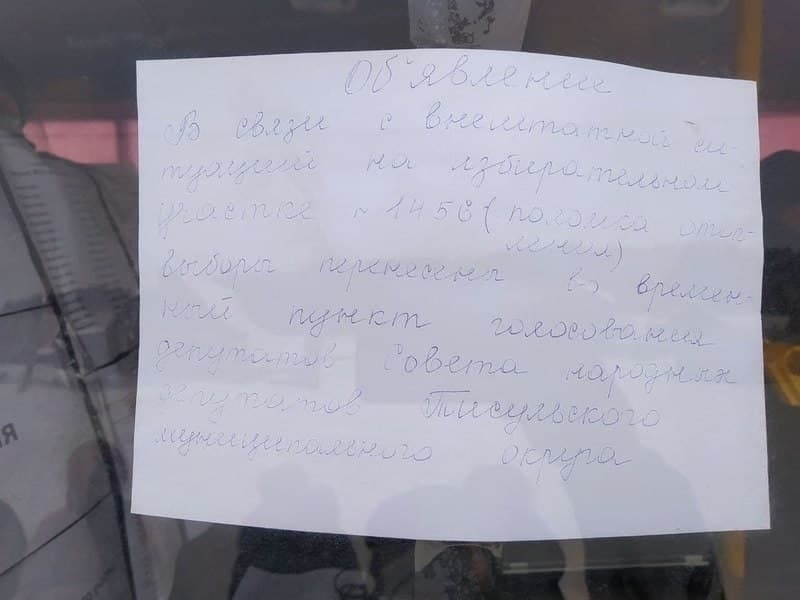 Об'явление
В связи с внештатной си-
туацией на избирательном
участке ~ 1456 (поломка отоп-
ления)
выборы перенесены во времен-
ный пункт голосования
депутатов Совета народных
депутатов Тисульского
муниципального округа